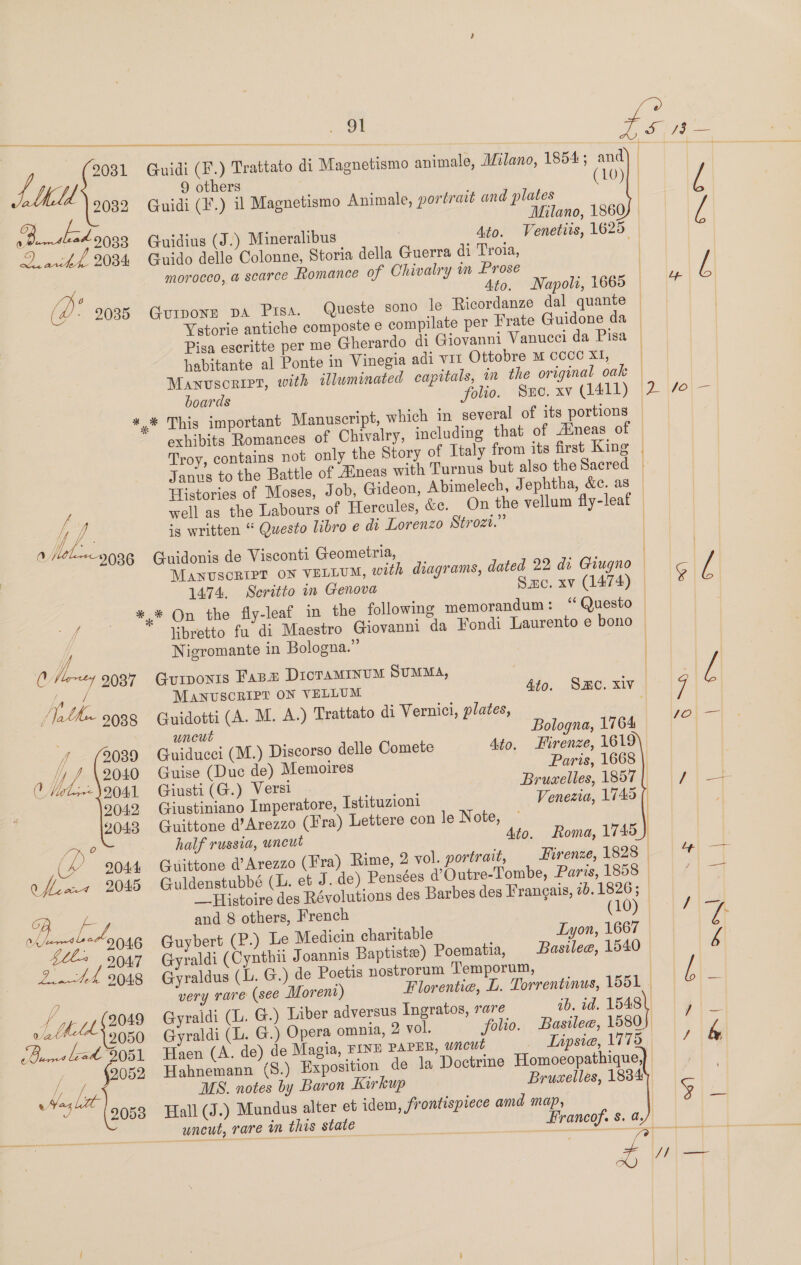 91
2031 Guidi (F.) Trattato di Magnetismo animale, Milano, 1854; and
9 others (10)
2032 Guidi (F.) il Magnetismo Animale, portrait and plates
Milano, 1860
2033 Guidius (J.) Mineralibus 4to. Venetiis, 1625
2034 Guido delle Colonne, Storia della Guerra di Troia,
morocco, a scarce Romance of Chivalry in Prose
4to. Napoli, 1665
2035 GUIDONE DA PISA. Queste sono le Ricordanze dal quante
Ystorie antiche composte e compilate per Frate Guidone da
Pisa escritte per me Gherardo di Giovanni Vanucci da Pisa
habitante al Ponte in Vinegia adi VII Ottobre M CCCC XI,
MANUSCRIPT, with illuminated capitals, in the original oak
boards folio. SÆC. XV (1411)
*** This important Manuscript, which in several of its portions
exhibits Romances of Chivalry, including that of Æneas of
Troy, contains not only the Story of Italy from its first King
Janus to the Battle of Æneas with Turnus but also the Sacred
Histories of Moses, Job, Gideon, Abimelech, Jephtha, &c. as
well as the Labours of Hercules, &c. On the vellum fly-leaf
is written “ Questo libro e di Lorenzo Strozi.”
2036 Guidonis de Visconti Geometria,
MANUSCRIPT ON VELLUM, with diagrams, dated 22 di Giugno
1474. Scritto in Genova SÆC. XV (1474)
*** On the fly-leaf in the following memorandum: “Questo
libretto fu di Maestro Giovanni da Fondi Laurento e bono
Nigromante in Bologna.”
2037 GUIDONIS FABÆ DICTAMINUM SUMMA,
MANUSCRIPT ON VELLUM 4to. SÆC. XIV
2038 Guidotti (A. M. A.) Trattato di Vernici, plates,
uncut Bologna, 1764
2039 Guiducci (M.) Discorso delle Comete 4to. Firenze, 1619
2040 Guise (Duc de) Memoires Paris, 1668
2041 Giusti (G.) Versi Bruxelles, 1857
2042 Giustiniano Imperatore, Istituzioni Venezia, 1745
2043 Guittone d'Arezzo (Fra) Lettere con le Note,
half russia, uncut 4to. Roma, 1745
2044 Guittone d'Arezzo (Fra) Rime, 2 vol. portrait, Firenze, 1828
2045 Guldenstubbé (L. et J. de) Pensées d'Outre-Tombe, Paris, 1858
—Histoire des Révolutions des Barbes des Français, ib. 1826;
and 8 others, French (10)
2046 Guybert (P.) Le Medicin charitable Lyon, 1667
2047 Gyraldi (Cynthii Joannis Baptistæ) Poematia, Basileæ, 1540
2048 Gyraldus (L. G.) de Poetis nostrorum Temporum,
very rare (see Moreni) Florentiæ, L. Torrentinus, 1551
2049 Gyraldi (L. G.) Liber adversus Ingratos, rare ib. id. 1548
2050 Gyraldi (L. G.) Opera omnia, 2 vol. folio. Basileæ, 1580
2051 Haen (A. de) de Magia, FINE PAPER, uncut Lipsiæ, 1775
2052 Hahnemann (S.) Exposition de la Doctrine Homoeopathique,
MS. notes by Baron Kirkup Bruxelles, 1834
2053 Hall (J.) Mundus alter et idem, frontispiece amd map,
uncut, rare in this state Francof. s. a.